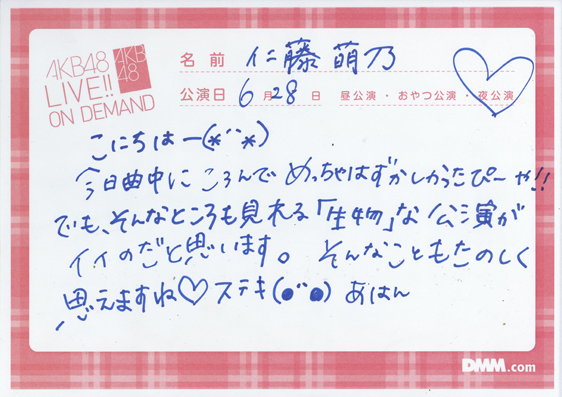 AKB48
LIVE!!
ON DEMAND
AKB
48
名前 仁藤萌乃
公演日 6月28日 昼公演・おやつ公演・夜公演
こにちはー(*´`*)
今日曲中にころんでめっちゃはずかしかったぴーや!!
でも、そんなところも見れる「生物」な公演が
イイのだと思います。そんなこともたのしく
思えますね♡ステキ(●´`●)あはん
DMM.com